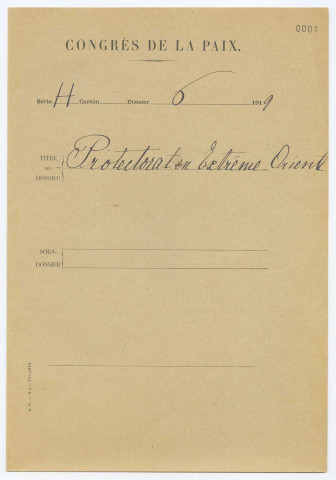 0001
CONGRÈS DE LA PAIX.
Série H Carton Dossier 6 1919
TITRE
DU
DOSSIER
Protectorat en Extrême-Orient
SOUS-
DOSSIER